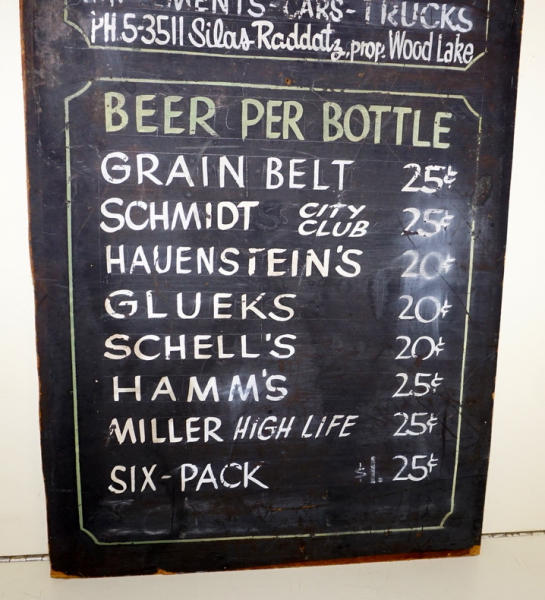 MENTS-CARS-TRUCKS
PH.5-3511 Silas Raddatz, prop. Wood Lake
BEER PER BOTTLE
GRAIN BELT 25¢
SCHMIDT CITY CLUB 25¢
HAUENSTEIN'S 20¢
GLUEKS 20¢
SCHELL'S 20¢
HAMM'S 25¢
MILLER HIGH LIFE 25¢
SIX-PACK $1.25¢